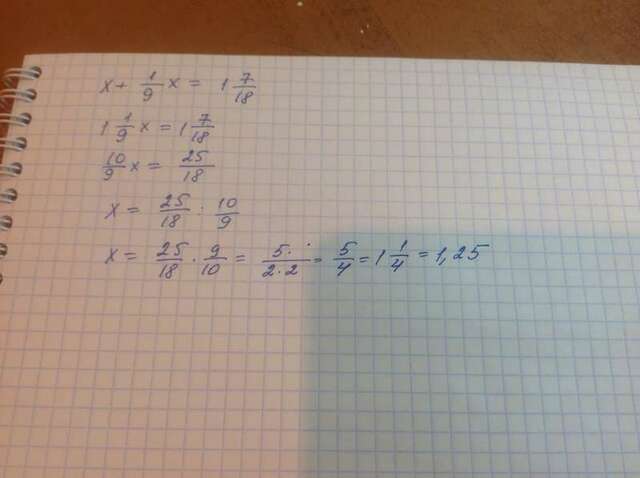 x + 1/9 x = 1 7/18
1 1/9 x = 1 7/18
10/9 x = 25/18
x = 25/18 : 10/9
x = 25/18 · 9/10 = 5·/2·2 = 5/4 = 1 1/4 = 1,25